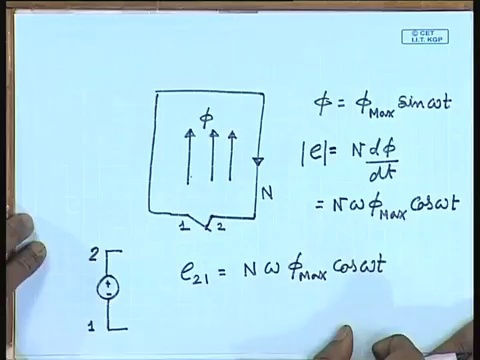 © CET
I.I.T. KGP
ϕ
ϕ = ϕ_Max sin ωt
|e| = N dϕ/dt
N
= N ω ϕ_Max cos ωt
1 2
2
e_21 = N ω ϕ_Max cos ωt
+
-
1